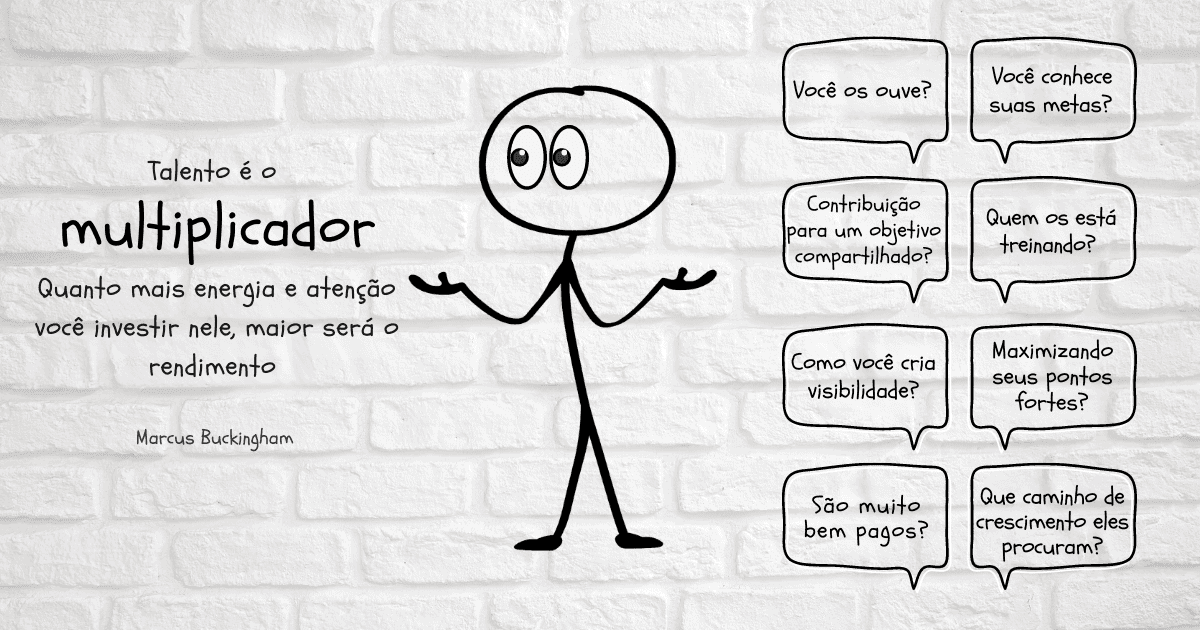 Talento é o
multiplicador
Quanto mais energia e atenção
você investir nele, maior será o
rendimento
Marcus Buckingham
Você os ouve?
Você conhece
suas metas?
Contribuição
para um objetivo
compartilhado?
Quem os está
treinando?
Como você cria
visibilidade?
Maximizando
seus pontos
fortes?
São muito
bem pagos?
Que caminho de
crescimento eles
procuram?